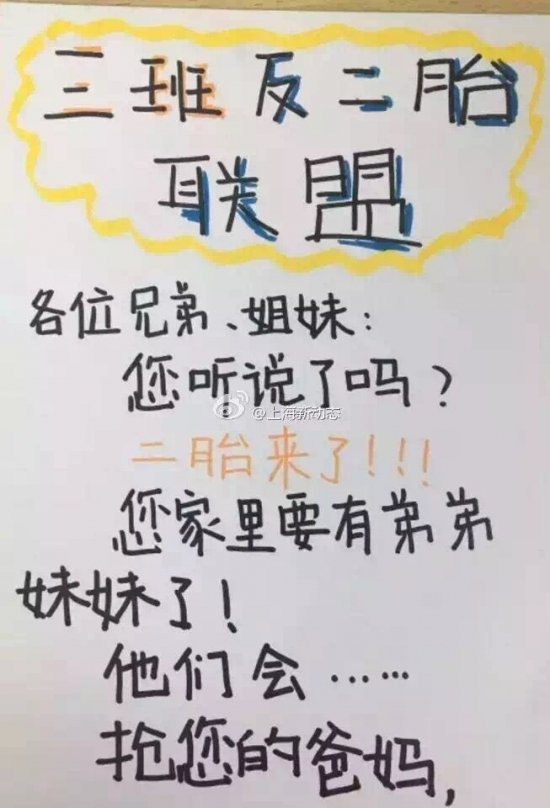 三班反二胎
联盟
各位兄弟、姐妹：
您听说了吗？
@上海新动态
二胎来了！！！
您家里要有弟弟
妹妹了！
他们会……
抢您的爸妈，